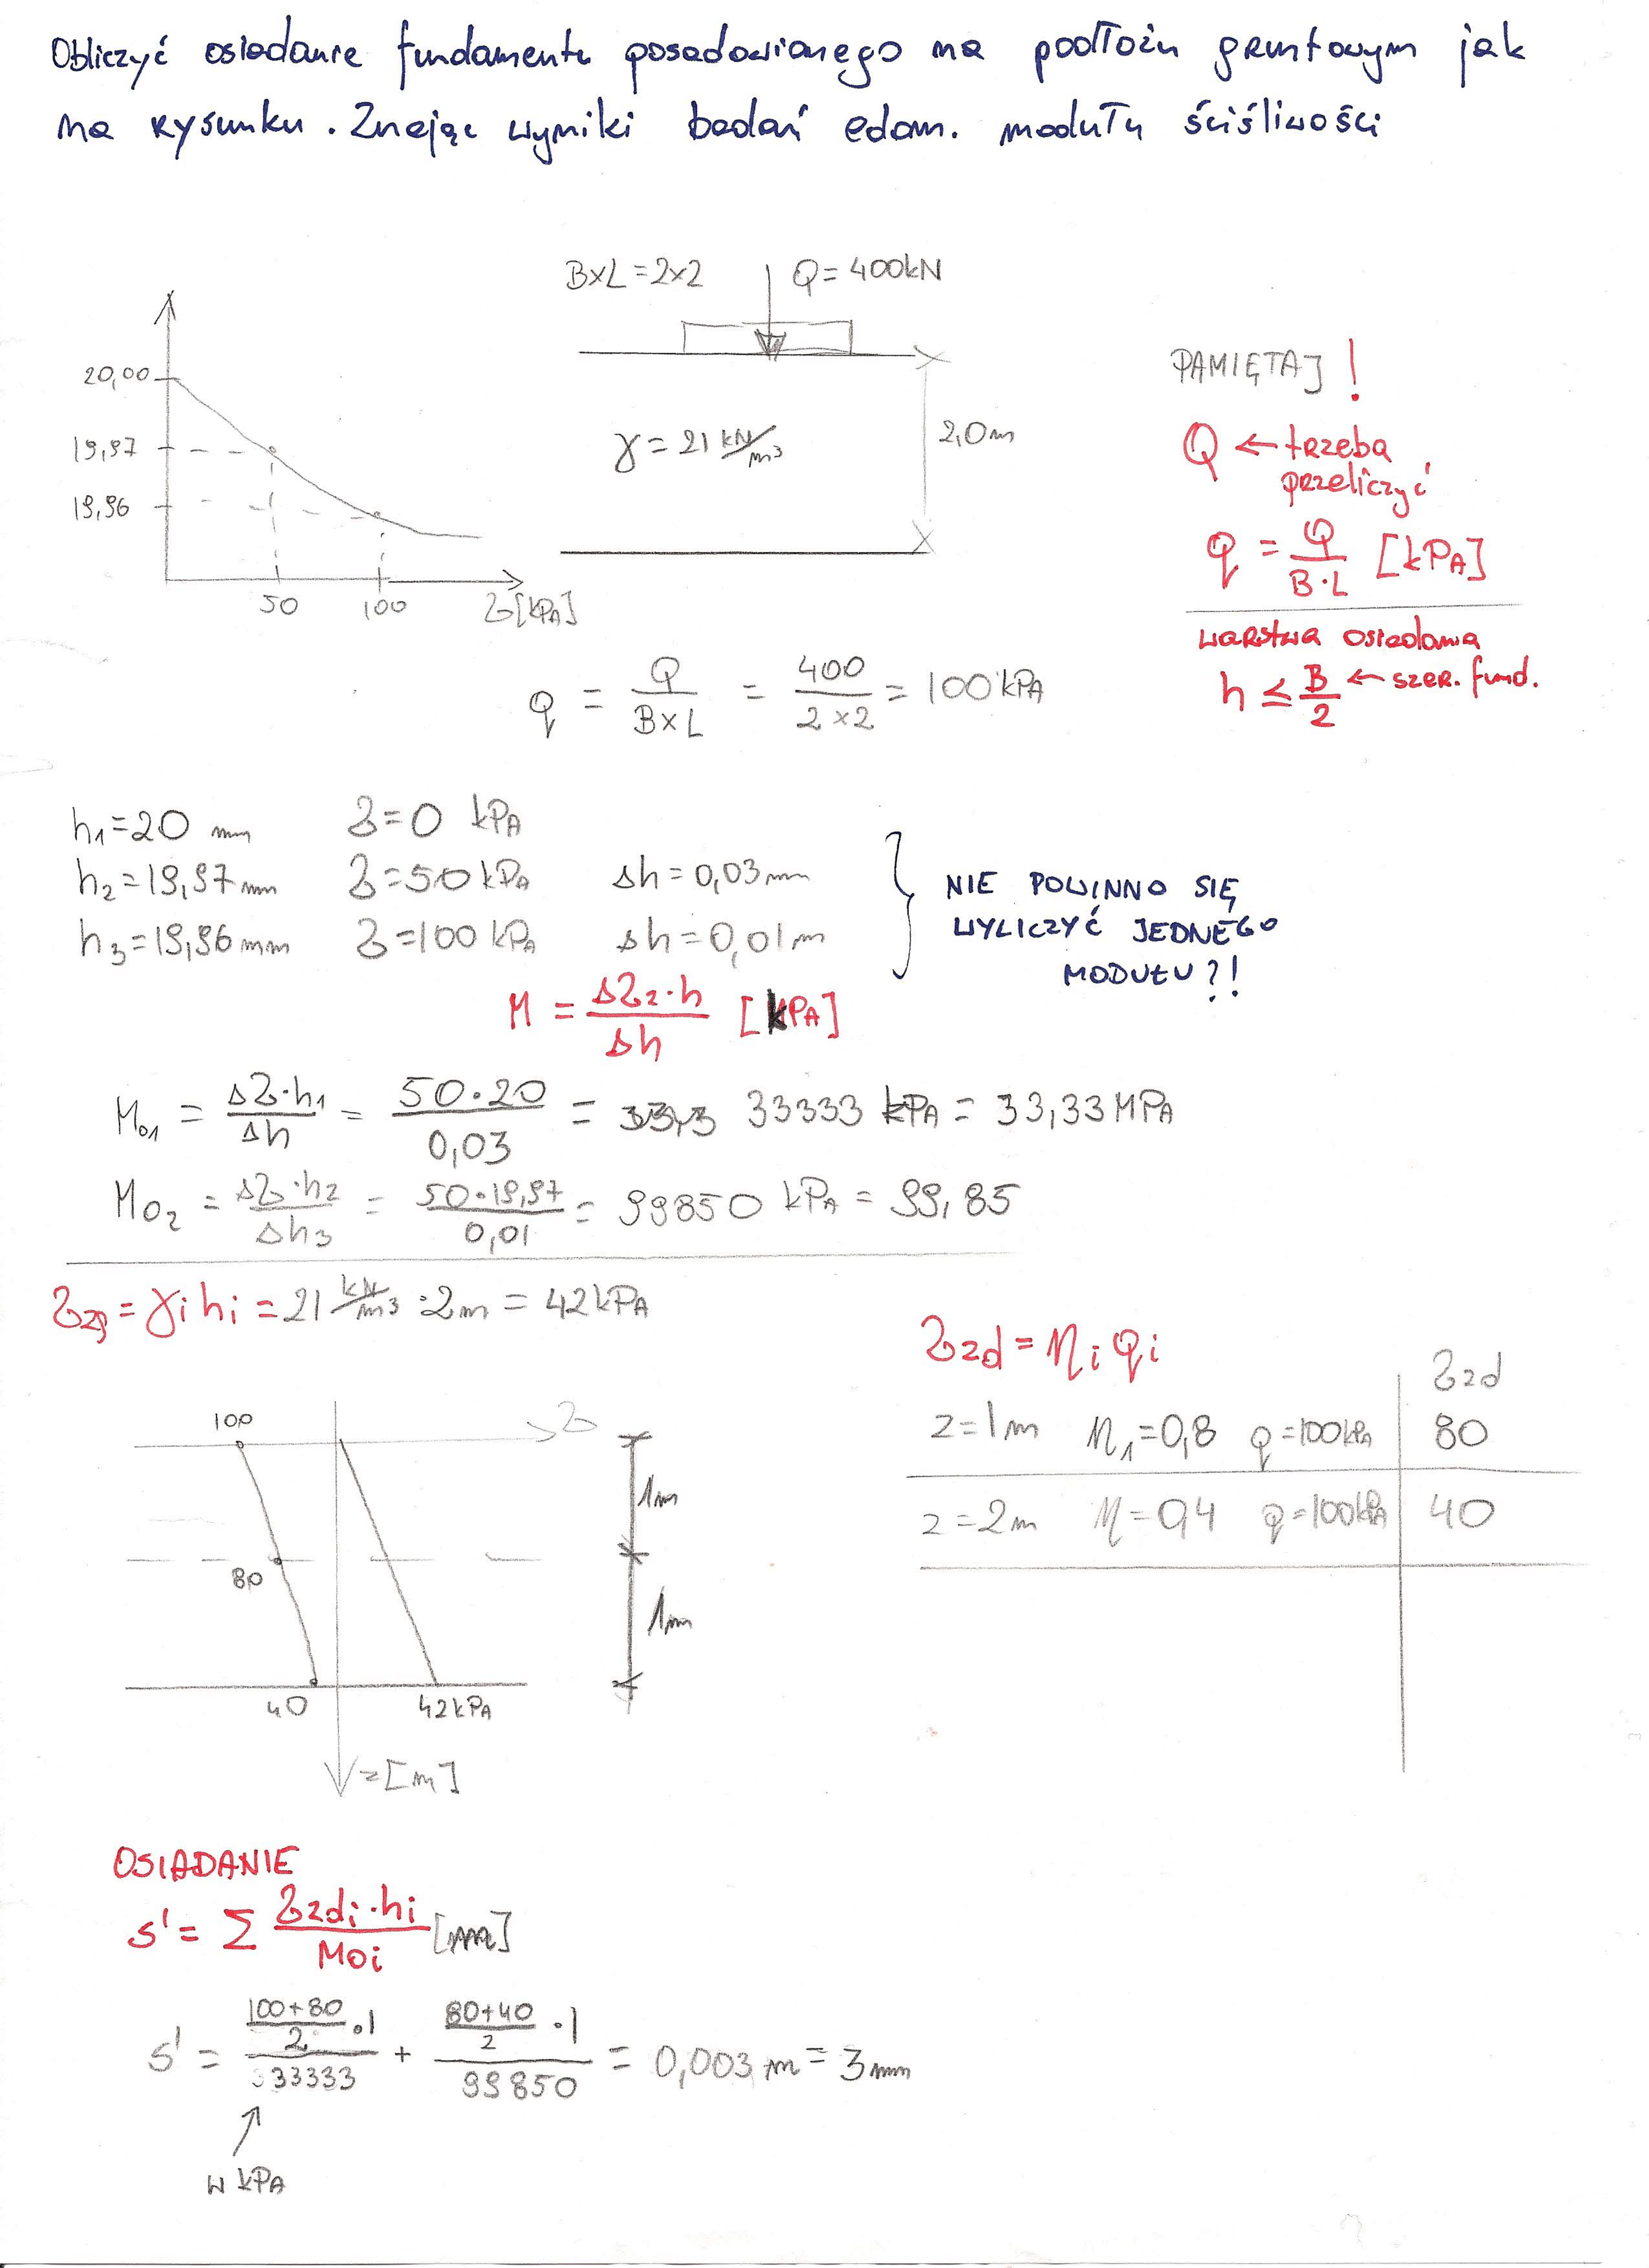 Obliczyć osiadanie fundamentu posadowionego na podłożu gruntowym jak
na rysunku. Znając wyniki badań edom. modułu ściśliwości
B×L=2×2 Q=400kN
20,00
19,97
19,96
50 100 σ[kPa]
γ=21 kN/m³
2,0m
PAMIĘTAJ!
Q ← trzeba
przeliczyć
q = Q/B·L [kPa]
warstwa osiadania
h ≤ B/2 ← szer. fund.
q = Q/B×L = 400/2×2 = 100 kPa
h₁=20 mm σ=0 kPa
h₂=19,97mm σ=50kPa Δh=0,03mm
h₃=19,96mm σ=100 kPa Δh=0,01m
NIE POWINNO SIĘ
WYLICZYĆ JEDNEGO
MODUŁU?!
M = Δσz·h/Δh [kPa]
M₀₁ = Δσ·h₁/Δh = 50·20/0,03 = 33333 kPa = 33,33 MPa
M₀₂ = Δσ·h₂/Δh₃ = 50·19,97/0,01 = 99850 kPa = 99,85
σzg = γi hi = 21 kN/m³ · 2m = 42kPa
σzd = ηi qi
σzd
z=1m η₁=0,8 q=100kPa 80
z=2m η=0,4 q=100kPa 40
100
σ
1m
80
1m
40 42kPa
z[m]
OSIADANIE
s' = Σ σzdi·hi/M0i
s' = (100+80)/2 ·1/33333 + (80+40)/2 ·1/99850 = 0,003 m = 3mm
w kPa